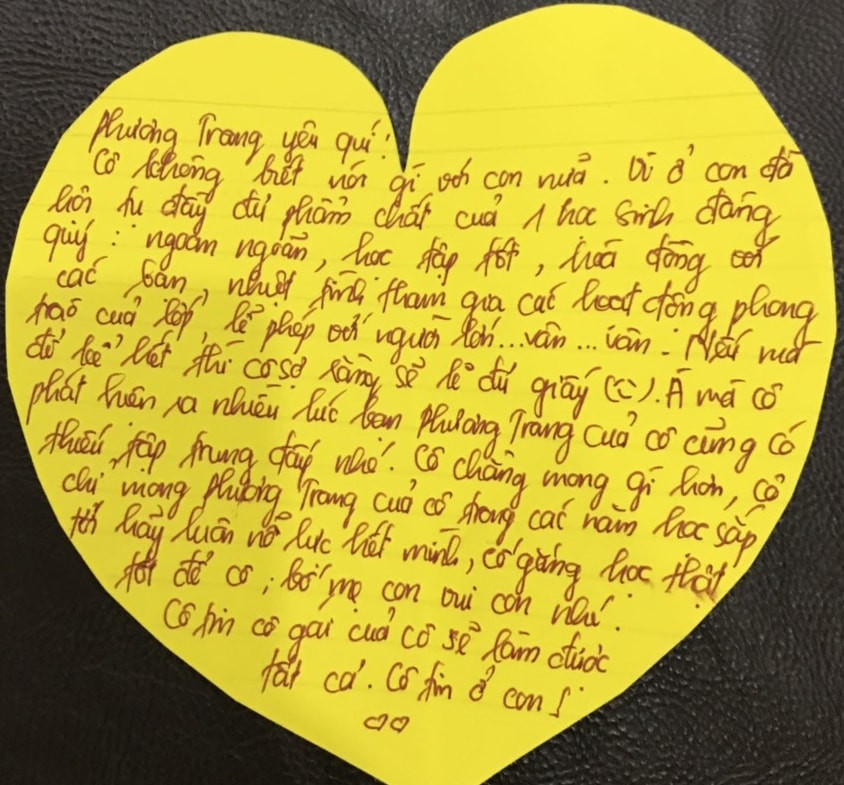 Phương Trang yêu quí!
Cô không biết nói gì với con nữa. Vì ở con đã
hội tụ đầy đủ phẩm chất của 1 học sinh đáng
quý: ngoan ngoãn, học tập tốt, hoà đồng với
các bạn, nhiệt tình tham gia các hoạt động phong
trào của lớp, lễ phép với người lớn...vân...vân. Nếu mà
để kể hết thì cô sợ rằng sẽ k đủ giấy (:). À mà cô
phát hiện ra nhiều lúc bạn Phương Trang của cô cũng có
thiếu tập trung đấy nhé. Cô chẳng mong gì hơn, cô
chỉ mong Phương Trang của cô trong các năm học sắp
tới hãy luôn nỗ lực hết mình, cố gắng học thật
tốt để cô, bố mẹ con vui con nhé.
Cô tin cô gái của cô sẽ làm được
tất cả. Cô tin ở con!